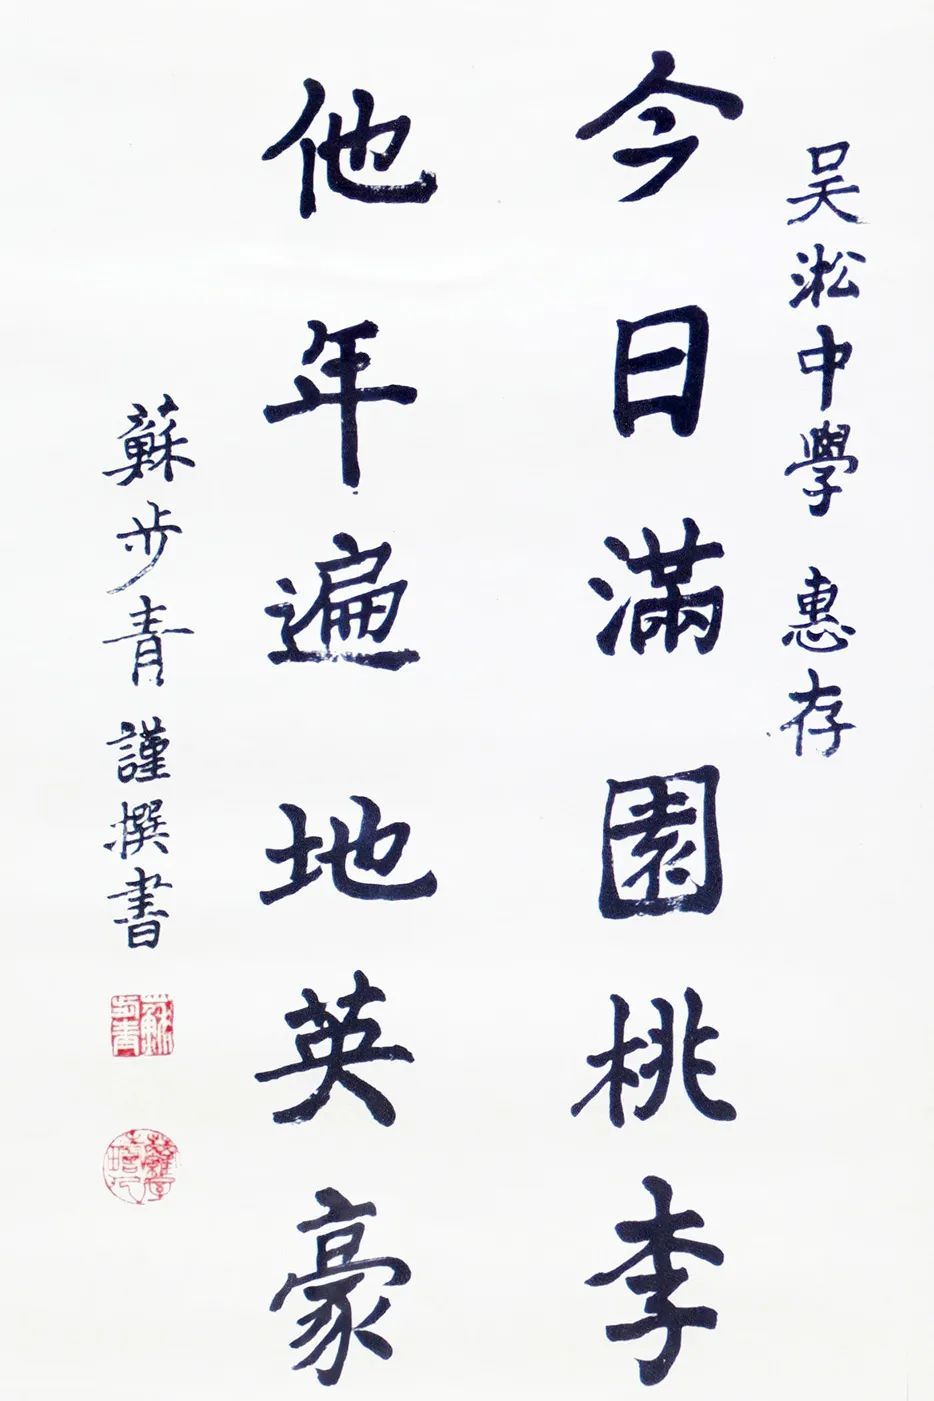 吴淞中學 惠存
今日滿園桃李
他年遍地英豪
蘇步青謹撰書
蘇步青